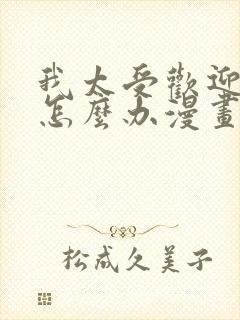 我太受歡迎
怎麼办漫畫
松成久美子